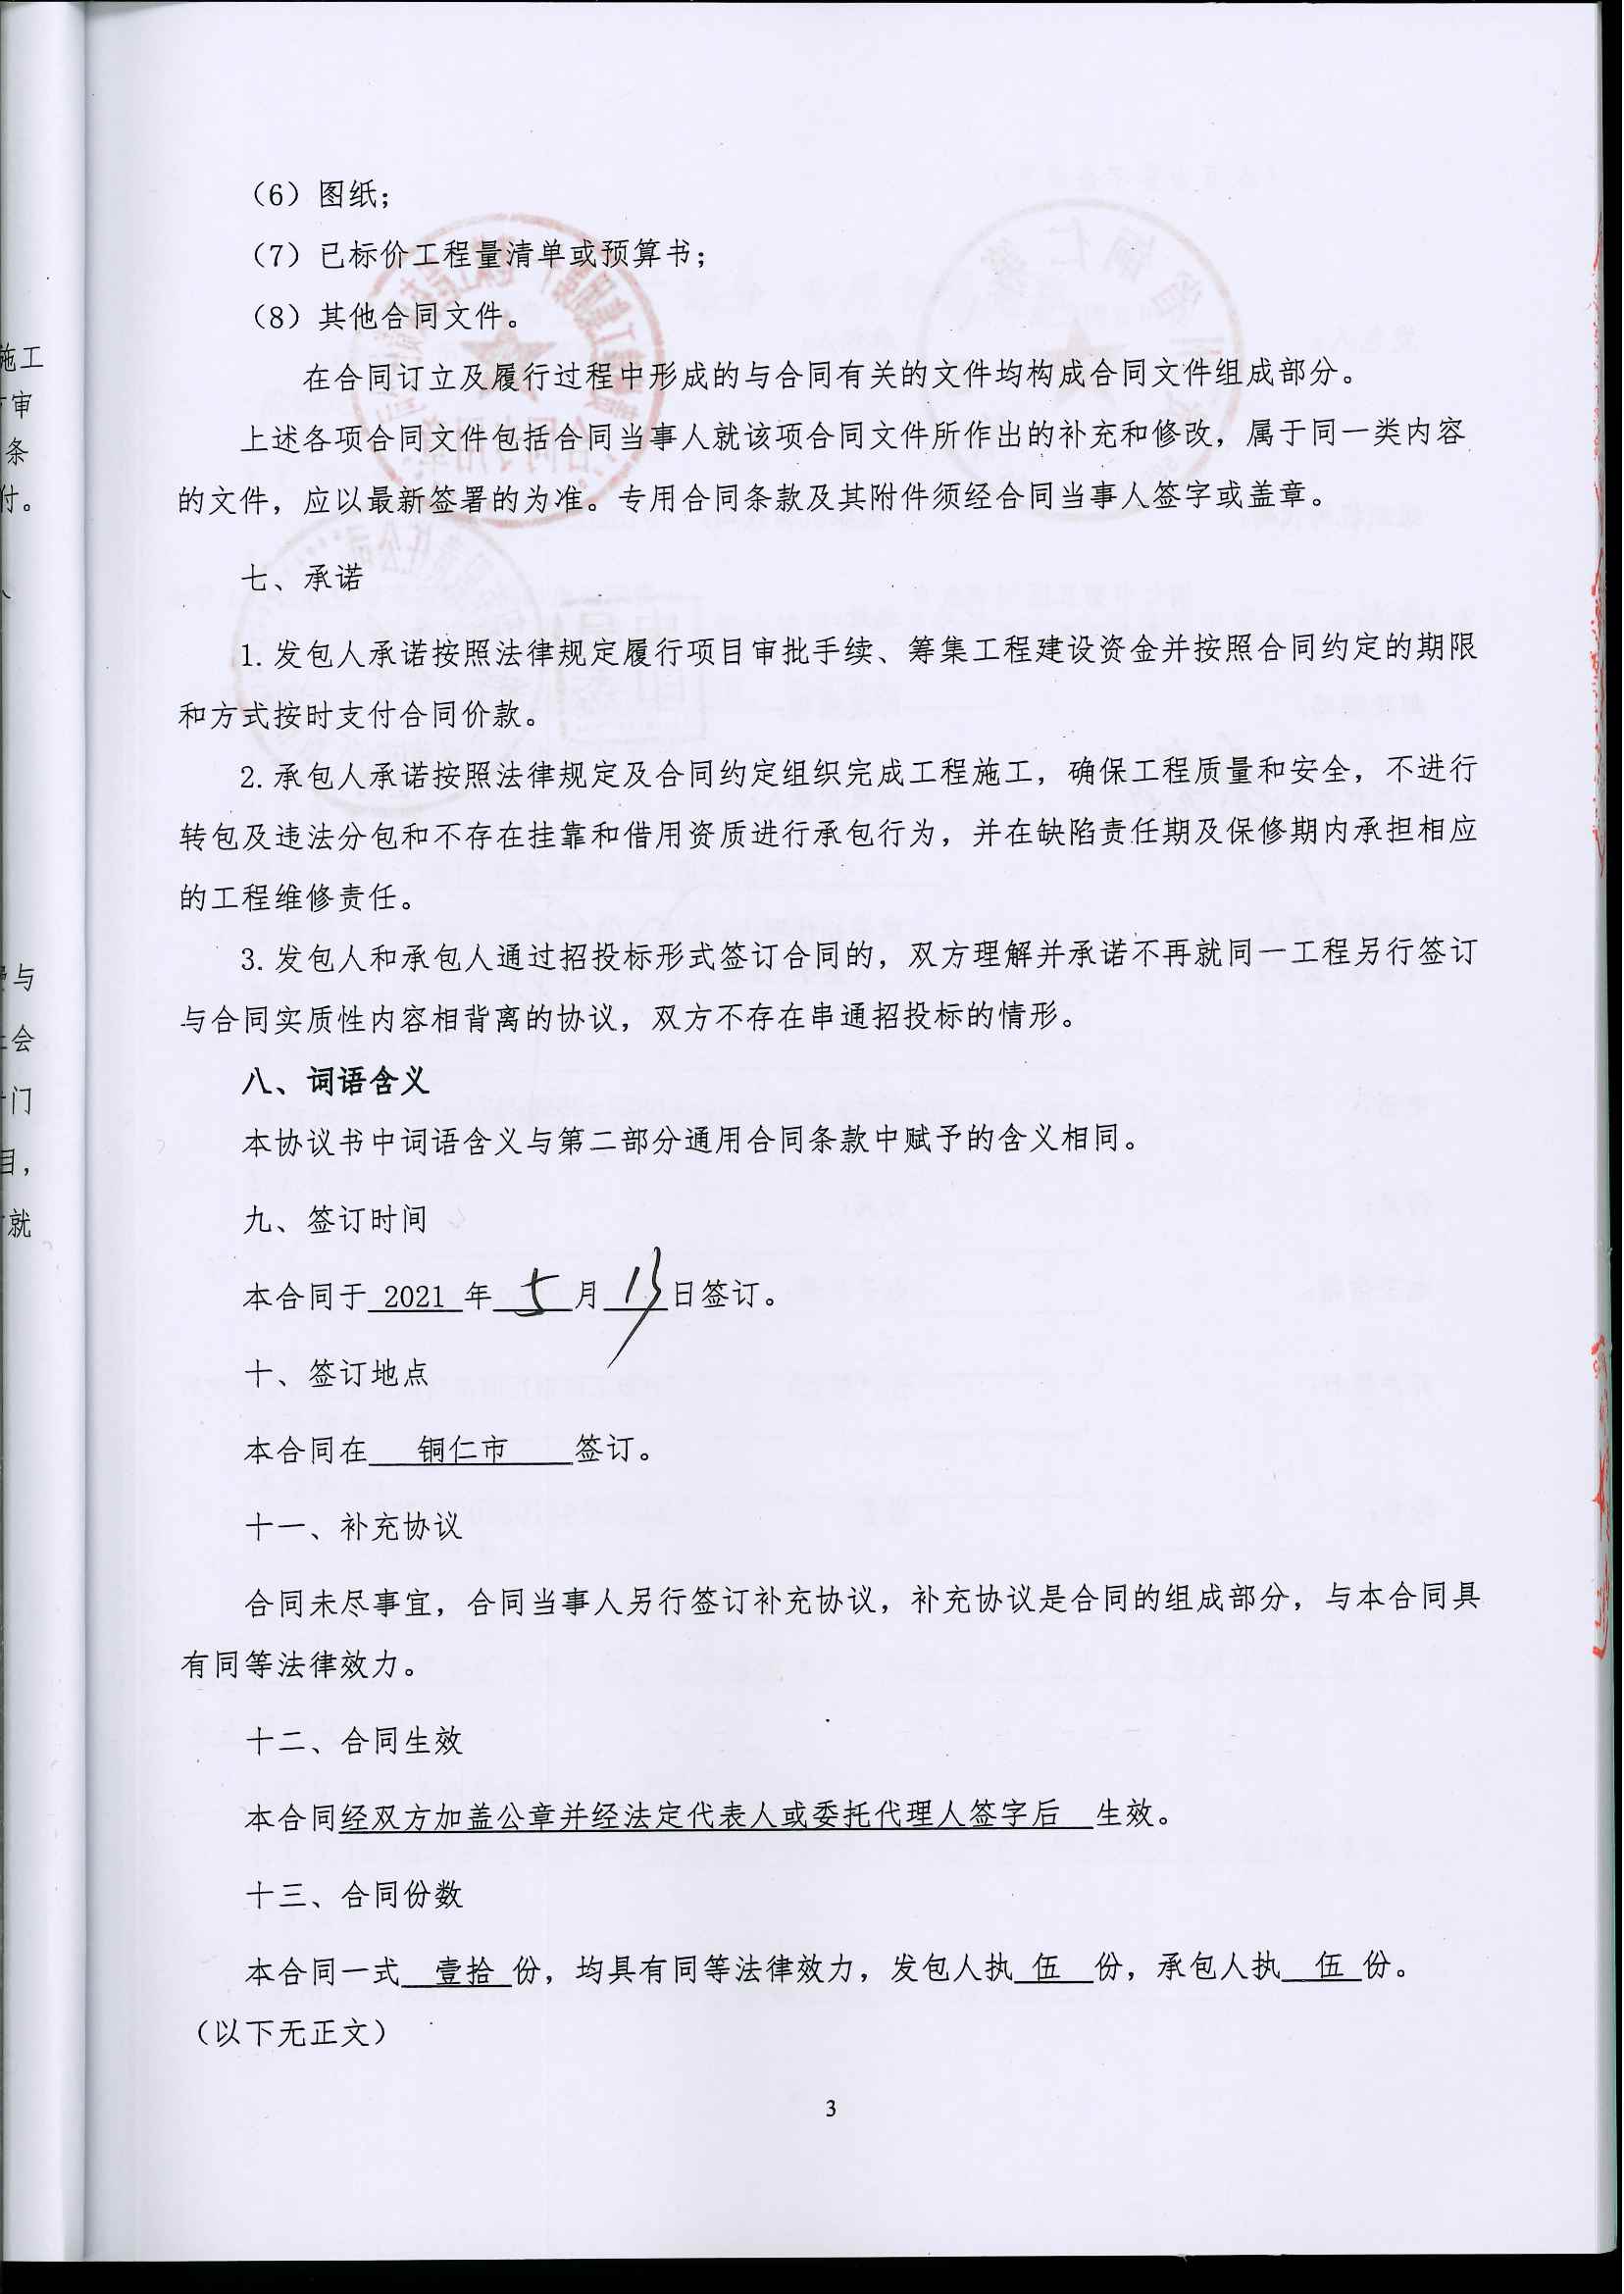 （6）图纸；
（7）已标价工程量清单或预算书；
（8）其他合同文件。
在合同订立及履行过程中形成的与合同有关的文件均构成合同文件组成部分。
上述各项合同文件包括合同当事人就该项合同文件所作出的补充和修改，属于同一类内容
的文件，应以最新签署的为准。专用合同条款及其附件须经合同当事人签字或盖章。
七、承诺
1. 发包人承诺按照法律规定履行项目审批手续、筹集工程建设资金并按照合同约定的期限
和方式按时支付合同价款。
2. 承包人承诺按照法律规定及合同约定组织完成工程施工，确保工程质量和安全，不进行
转包及违法分包和不存在挂靠和借用资质进行承包行为，并在缺陷责任期及保修期内承担相应
的工程维修责任。
3. 发包人和承包人通过招投标形式签订合同的，双方理解并承诺不再就同一工程另行签订
与合同实质性内容相背离的协议，双方不存在串通招投标的情形。
八、词语含义
本协议书中词语含义与第二部分通用合同条款中赋予的含义相同。
九、签订时间
本合同于 2021 年 5 月 13 日签订。
十、签订地点
本合同在 铜仁市 签订。
十一、补充协议
合同未尽事宜，合同当事人另行签订补充协议，补充协议是合同的组成部分，与本合同具
有同等法律效力。
十二、合同生效
本合同经双方加盖公章并经法定代表人或委托代理人签字后 生效。
十三、合同份数
本合同一式 壹拾 份，均具有同等法律效力，发包人执 伍 份，承包人执 伍 份。
（以下无正文）
3
施工
审
条
付。
与
会
门
目，
就